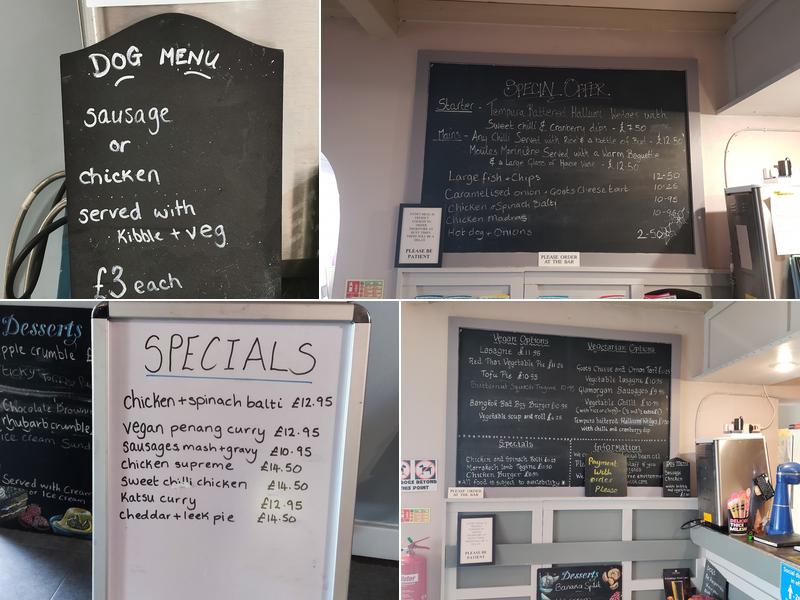 DOG MENU
sausage
or
chicken
served with
kibble + veg
£3 each
SPECIAL OFFER
Starter - Tempura Battered Halloumi Wedges with
Sweet chilli & Cranberry dips - £7.50
Mains - Any Chilli Served with Rice & a bottle of Bud - £12.50
Moules Mariniére Served with a Warm Baguette
& a Large Glass of House Wine - £12.50
Large fish + Chips 12-50
Caramelised onion + Goats Cheese tart 10-25
Chicken + Spinach Balti 10-95
Chicken madras 10-95
Hot dog + Onions 2-50
PLEASE BE
PATIENT
PLEASE ORDER
AT THE BAR
Desserts
pple crumble £
Sticky Toffee
Chocolate Brown
rhubarb crumble
ice cream Sund
Served with Cream
or Ice cream
SPECIALS
chicken + spinach balti £12.95
vegan penang curry £12.95
sausages mash + gravy £10.95
chicken supreme £14.50
sweet chilli chicken £14.50
Katsu curry £12.95
cheddar + leek pie £14.50
Vegan Options
Lasagne £11.95
Red Thai Vegetable Pie £11.25
Tofu Pie £10.95
Butternut Squash Tagine 10.95
Bangkok Bad Boy Burger £10.95
Vegetable soup and roll £6.25
Vegetarian Options
Goats Cheese and Onion Tart
Vegetable Lasagne £10.95
Glamorgan Sausages £9.95
Vegetable Chilli £10.95
Tempura battered Halloumi Wedges
with chilli and cranberry dip
Specials
Chicken and Spinach Balti
Marrakech lamb Tagine
Chicken Burger
All Food is subject to availability
Information
Payment
With
order
Please
PLEASE ORDER
AT THE BAR
PLEASE BE
PATIENT
DOGS BEYOND
THIS POINT
Desserts
Banana Split
DELICIOUS
THICK